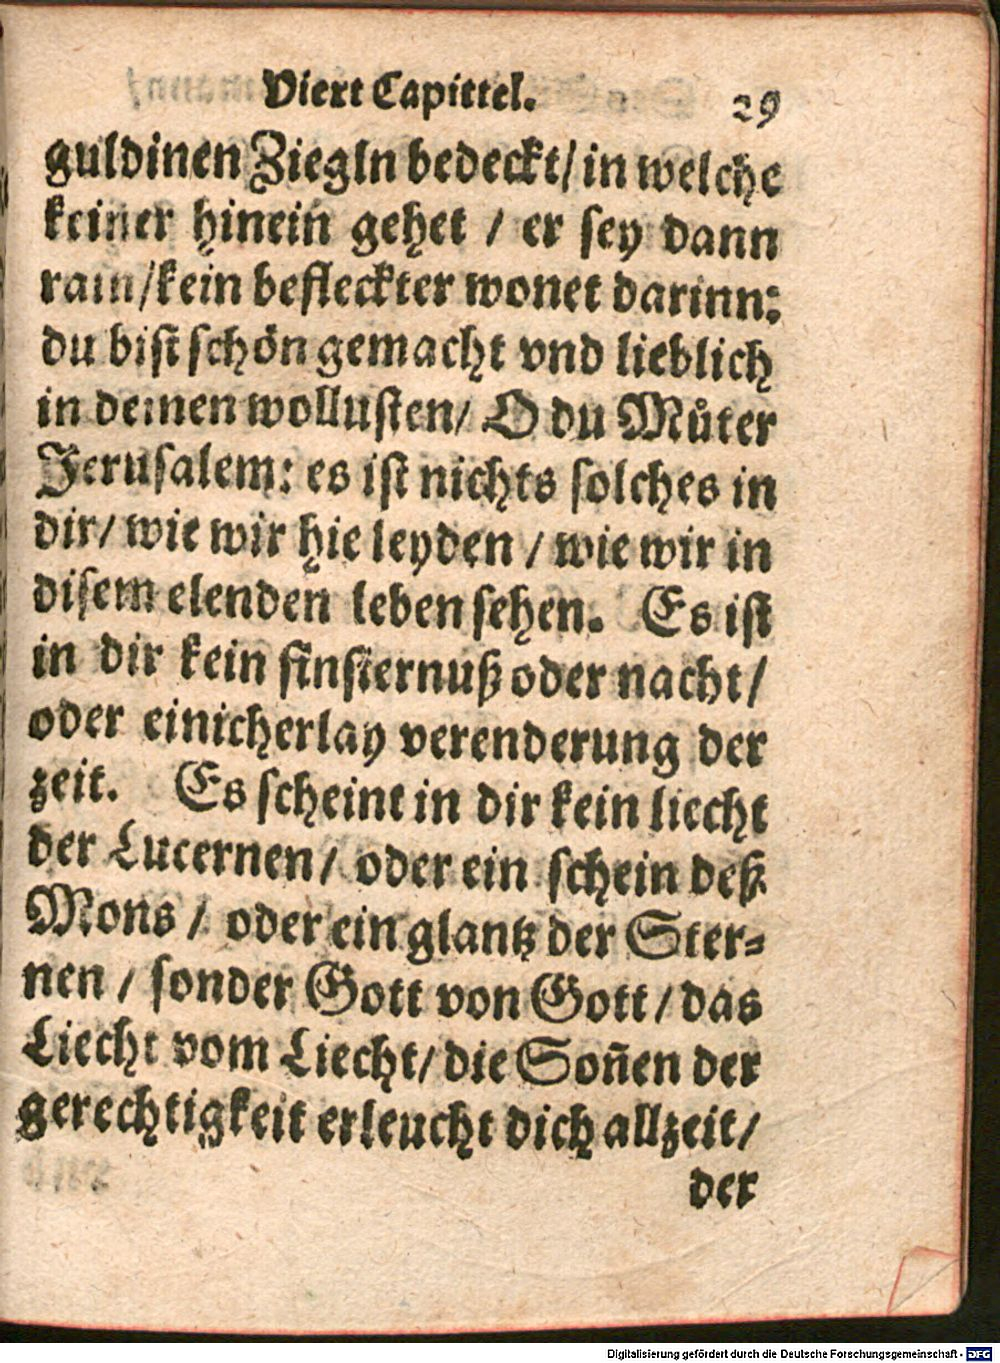 Viert Capittel. 29
guldinen Ziegln bedeckt/ in welche
keiner hinein gehet / er sey dann
rain/kein befleckter wonet darinn:
du bist schön gemacht vnd lieblich
in deinen wollusten/ O du Můter
Jerusalem: es ist nichts solches in
dir/ wie wir hie leyden / wie wir in
disem elenden leben sehen. Es ist
in dir kein finsternuß oder nacht/
oder einicherlay verenderung der
zeit. Es scheint in dir kein liecht
der Lucernen/ oder ein schein deß
Mons / oder ein glantz der Ster-
nen / sonder Gott von Gott / das
Liecht vom Liecht/ die Soñen der
gerechtigkeit erleucht dich allzeit/
der
Digitalisierung gefördert durch die Deutsche Forschungsgemeinschaft - DFG